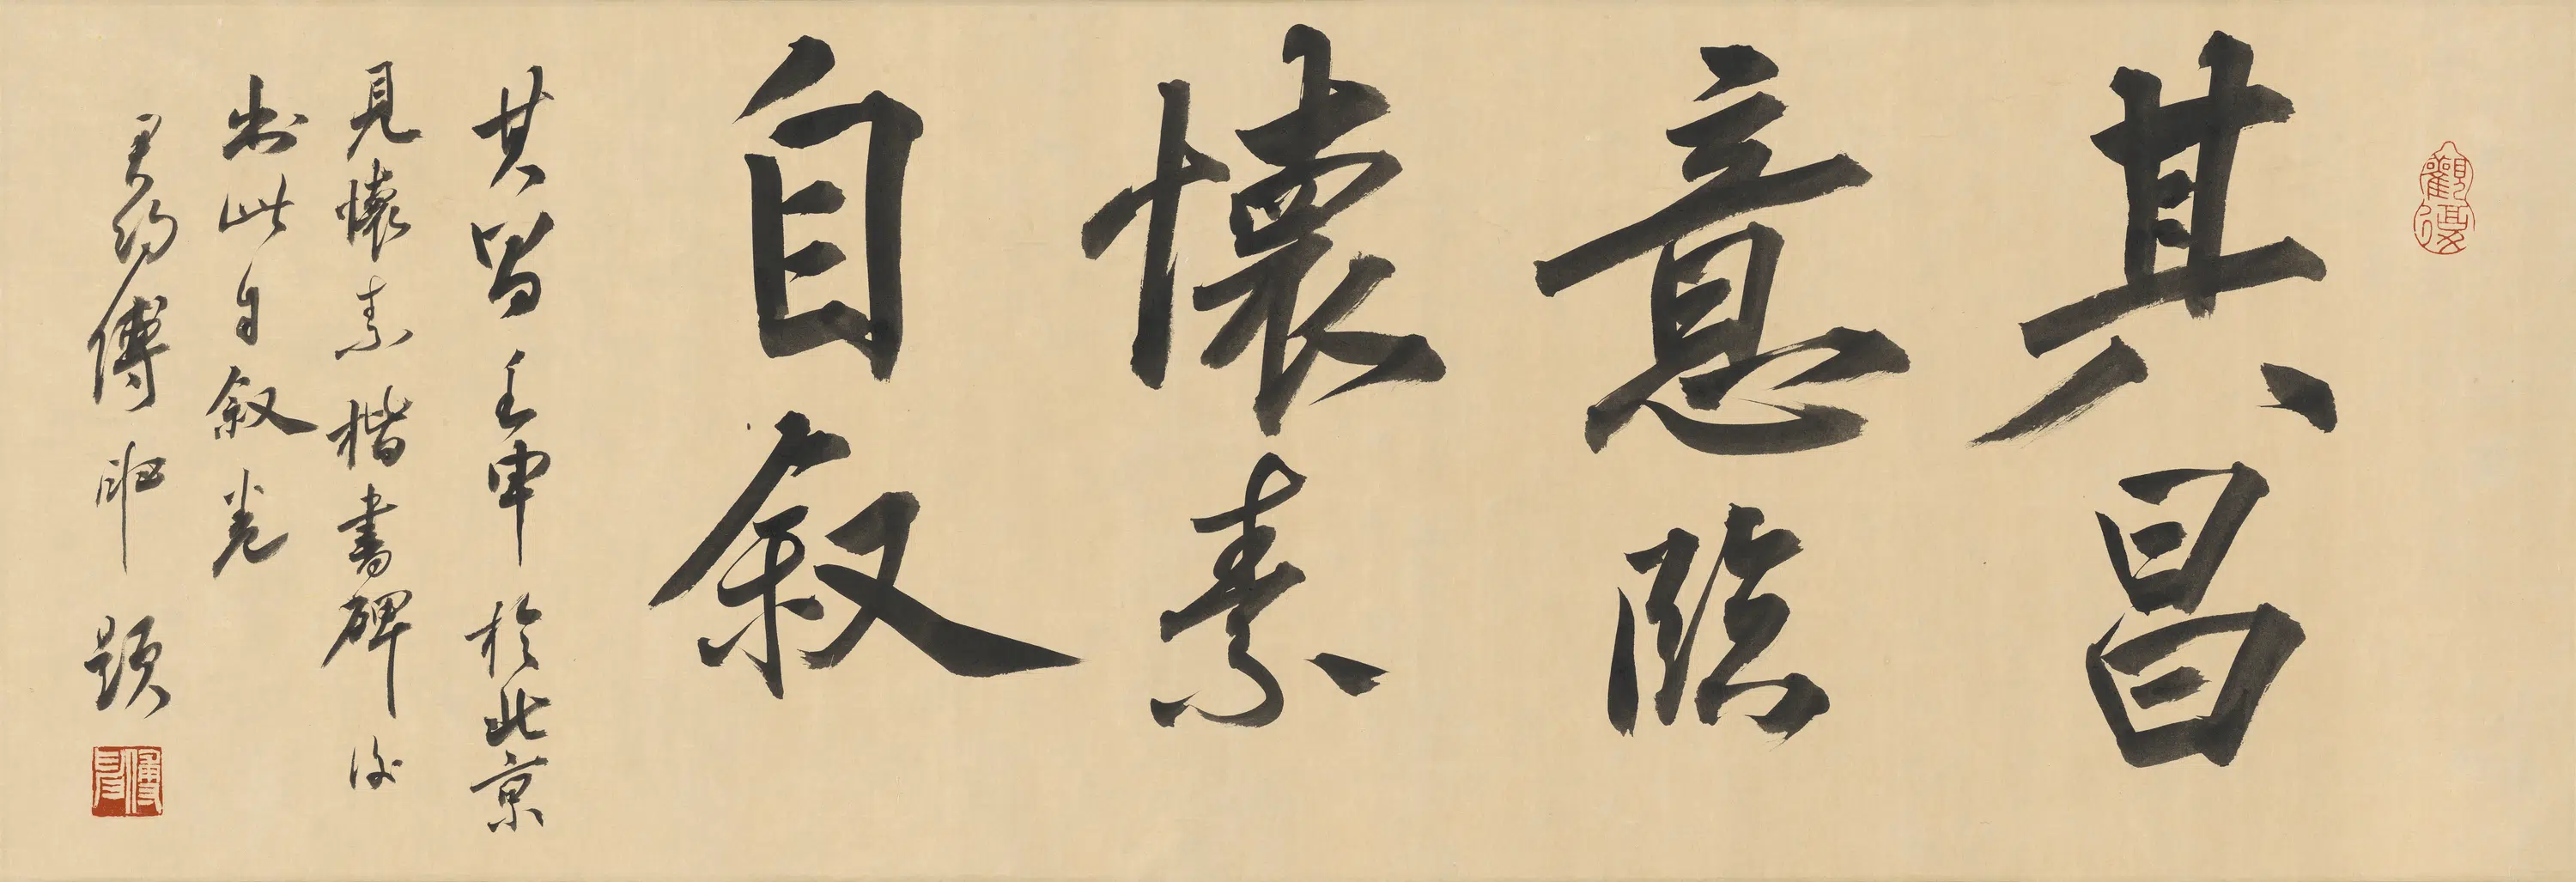 其昌
意臨
懷素
自叙
其昌壬申於北京
見懷素楷書碑後
出此自叙卷
君約傅申題